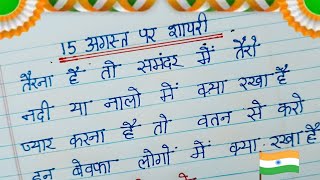 15 अगस्त पर शायरी
तैरना है तो समंदर में तैरो
नदी या नालो में क्या रखा है
प्यार करना है तो वतन से करो
इन बेवफा लोगों में क्या रखा है